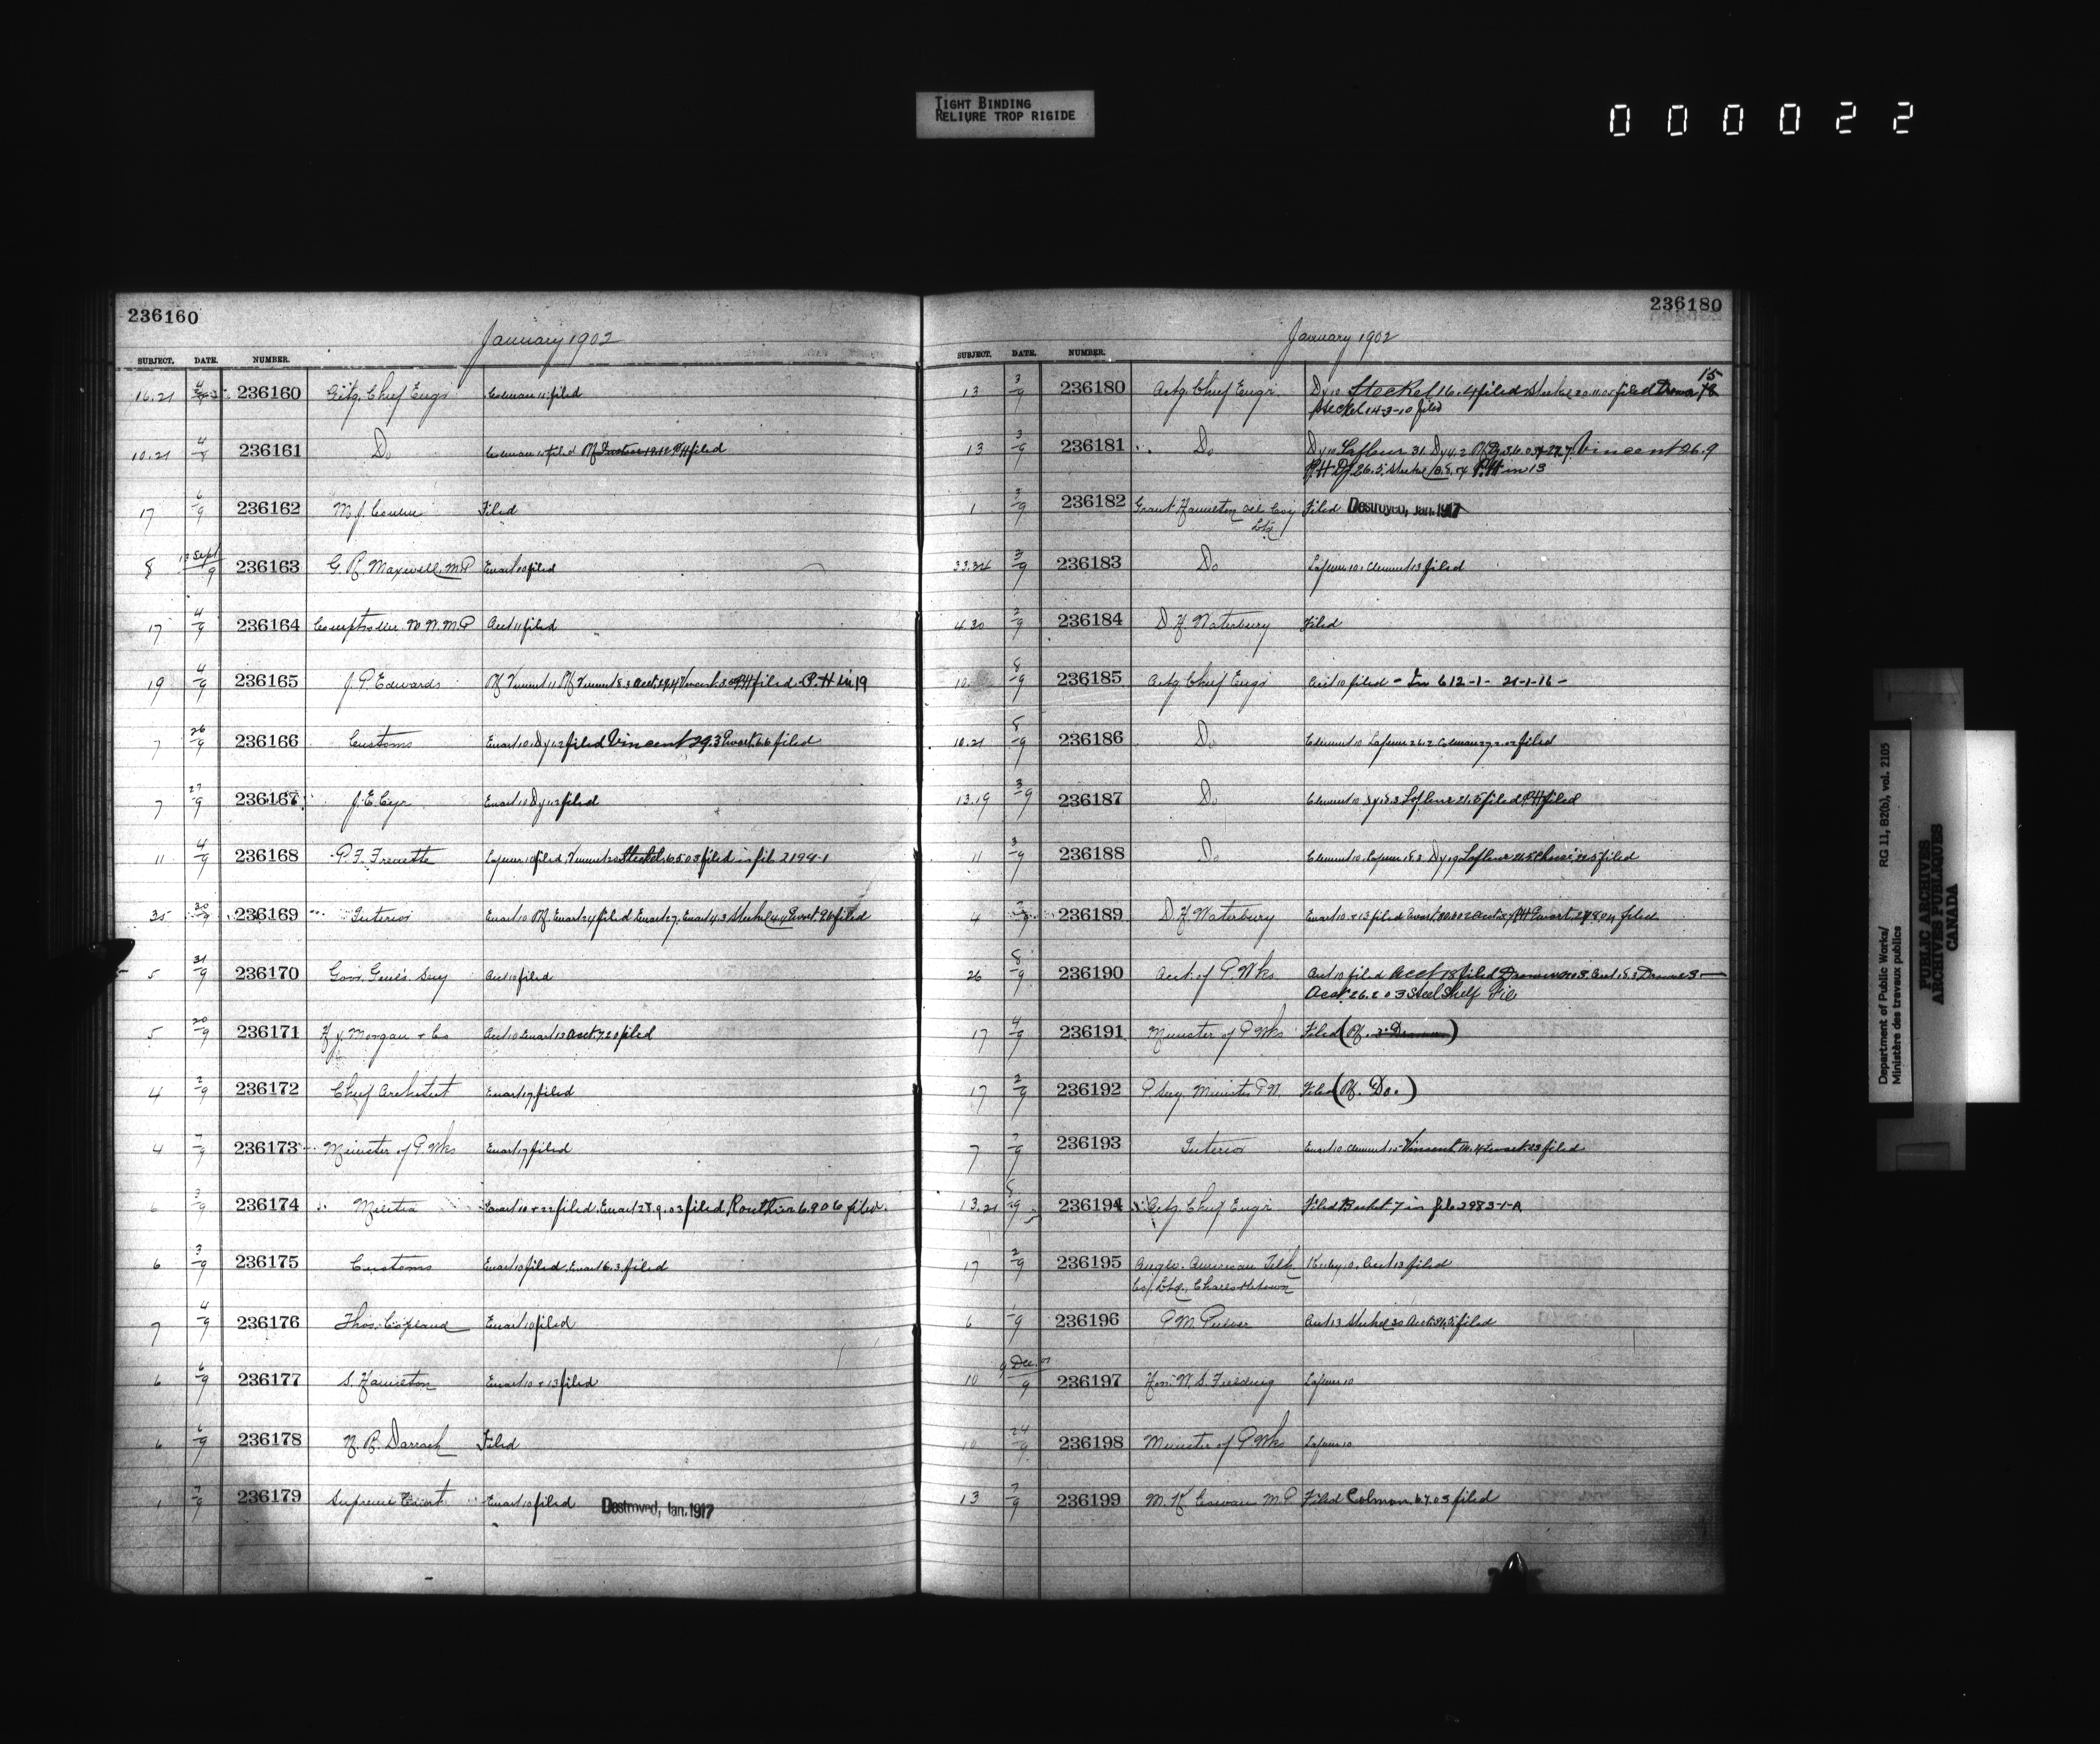 TIGHT BINDING
RELIURE TROP RIGIDE
000022
236160
January 1902
SUBJECT. DATE. NUMBER.
16.21 236160 Actg. Chief Engr Coleman 11 filed
10.21 4/9 236161 Do
17 6/9 236162 M. J. Filed
8 13 Sept/9 236163 G. R. Maxwell M.P. Ewart 10 filed
17 4/9 236164 Comptroller N.W.M.P. Acct 11 filed
19 4/9 236165 J. P. Edwards filed P.H in 19
7 26/9 236166 Customs Ewart 10 Dy 12 filed Vincent 29.3 Ewart 6.6 filed
7 27/9 236167 J. E. Cyr Ewart 10 Dy 12 filed
11 4/9 236168 P. F. Frenette Lafleur 10 filed Steckel 6.5.03 filed in file 2194-1
35 30/9 236169 Interior Ewart 10 Ewart 24 filed Ewart 27 Ewart 4.3 Steckel 4.4 Ewart 9.6 filed
5 31/9 236170 Gov. Genl's. Secy Acct 10 filed
5 20/9 236171 H. J. Morgan & Co Acct 10 Ewart 13 Acct 7.20 filed
4 2/9 236172 Chief Architect Ewart 17 filed
4 7/9 236173 Minister of P. Wks Ewart 17 filed
6 3/9 236174 Militia Ewart 10 + 22 filed. Ewart 28.9.03 filed, Routhier 6.9 06 filed.
6 3/9 236175 Customs Ewart 10 filed. Ewart 6.3. filed
7 4/9 236176 Thos. Copland Ewart 10 filed
6 6/9 236177 S. Hamilton Ewart 10 + 13 filed
6 6/9 236178 N. B. Darrach Filed
1 7/9 236179 Supreme Court Ewart 10 filed Destroyed, Jan. 1917
236180
January 1902
SUBJECT. DATE. NUMBER.
13 3/9 236180 Actg. Chief Engr. Dy 10 Steckel 16.4 filed Steckel 20.11.05 filed 15
Steckel 14-3-10 filed
13 3/9 236181 Do Dy 10 Lafleur 31. Dy 4.2 Vincent 26.9
P.H in 13
1 3/9 236182 Grant Hamilton Oil Coy Filed Destroyed, Jan. 1917
Ltd
33.34 3/9 236183 Do Lafleur 10. Clement 13 filed
4.20 2/9 236184 D. H. Waterbury Filed
10 8/9 236185 Actg Chief Engr Acct 10 filed - In 612-1- 21-1-16 -
10.21 8/9 236186 Do Clement 10 Lafleur 26.2 Colman 27.2.02 filed
13.19 3/9 236187 Do Clement 10 Dy 18.3 Lafleur 21.5 filed P.H filed
11 3/9 236188 Do Clement 10. Lafleur 18.3 Dy 19 Lafleur 21.5 filed
4 236189 D H Waterbury Ewart 10. + 13 filed filed
26 8/9 236190 Acct. of P. Wks Acct 10 filed Acct 18 filed
Acct 26.2 03 Steel Shelf File
17 4/9 236191 Minister of P. Wks Filed
17 2/9 236192 P. Secy. Minister P.W. Filed (Rf. Do.)
7 7/9 236193 Interior Ewart 10. Clement 15 Vincent Ewart 23 filed
13.21 8/9 236194 Actg. Chief Engr. Filed in file 2983-1-A
17 2/9 236195 Anglo. American Telh Keeley 10. Acct 13 filed
Co. Ltd. Charlottetown
6 236196 P. M. Pulver Acct 13 Steckel 20 filed
10 9 Dec. 01/9 236197 Hon. W. S. Fielding Lafleur 10
10 24/9 236198 Minister of P. Wks Lafleur 10
13 7/9 236199 M. K. Cowan M.P. Filed Colman. 6.7.03 filed
Department of Public Works/ RG 11, B2(b), vol. 2105
Ministère des travaux publics
PUBLIC ARCHIVES
ARCHIVES PUBLIQUES
CANADA